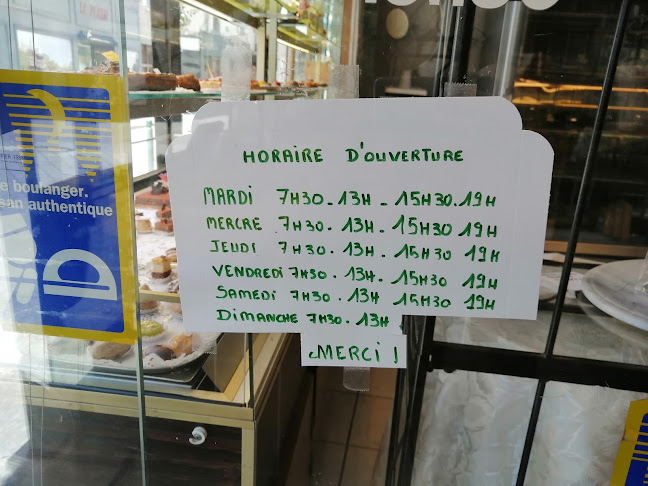 HORAIRE D'OUVERTURE
MARDI 7H30.13H - 15H30.19H
MERCRE 7H30.13H. 15H30 19H
JEUDI 7H30.13H. 15H30 19H
VENDREDI 7H30.13H. 15H30 19H
SAMEDI 7H30.13H 15H30 19H
DIMANCHE 7H30.13H
MERCI !
boulanger.
san authentique